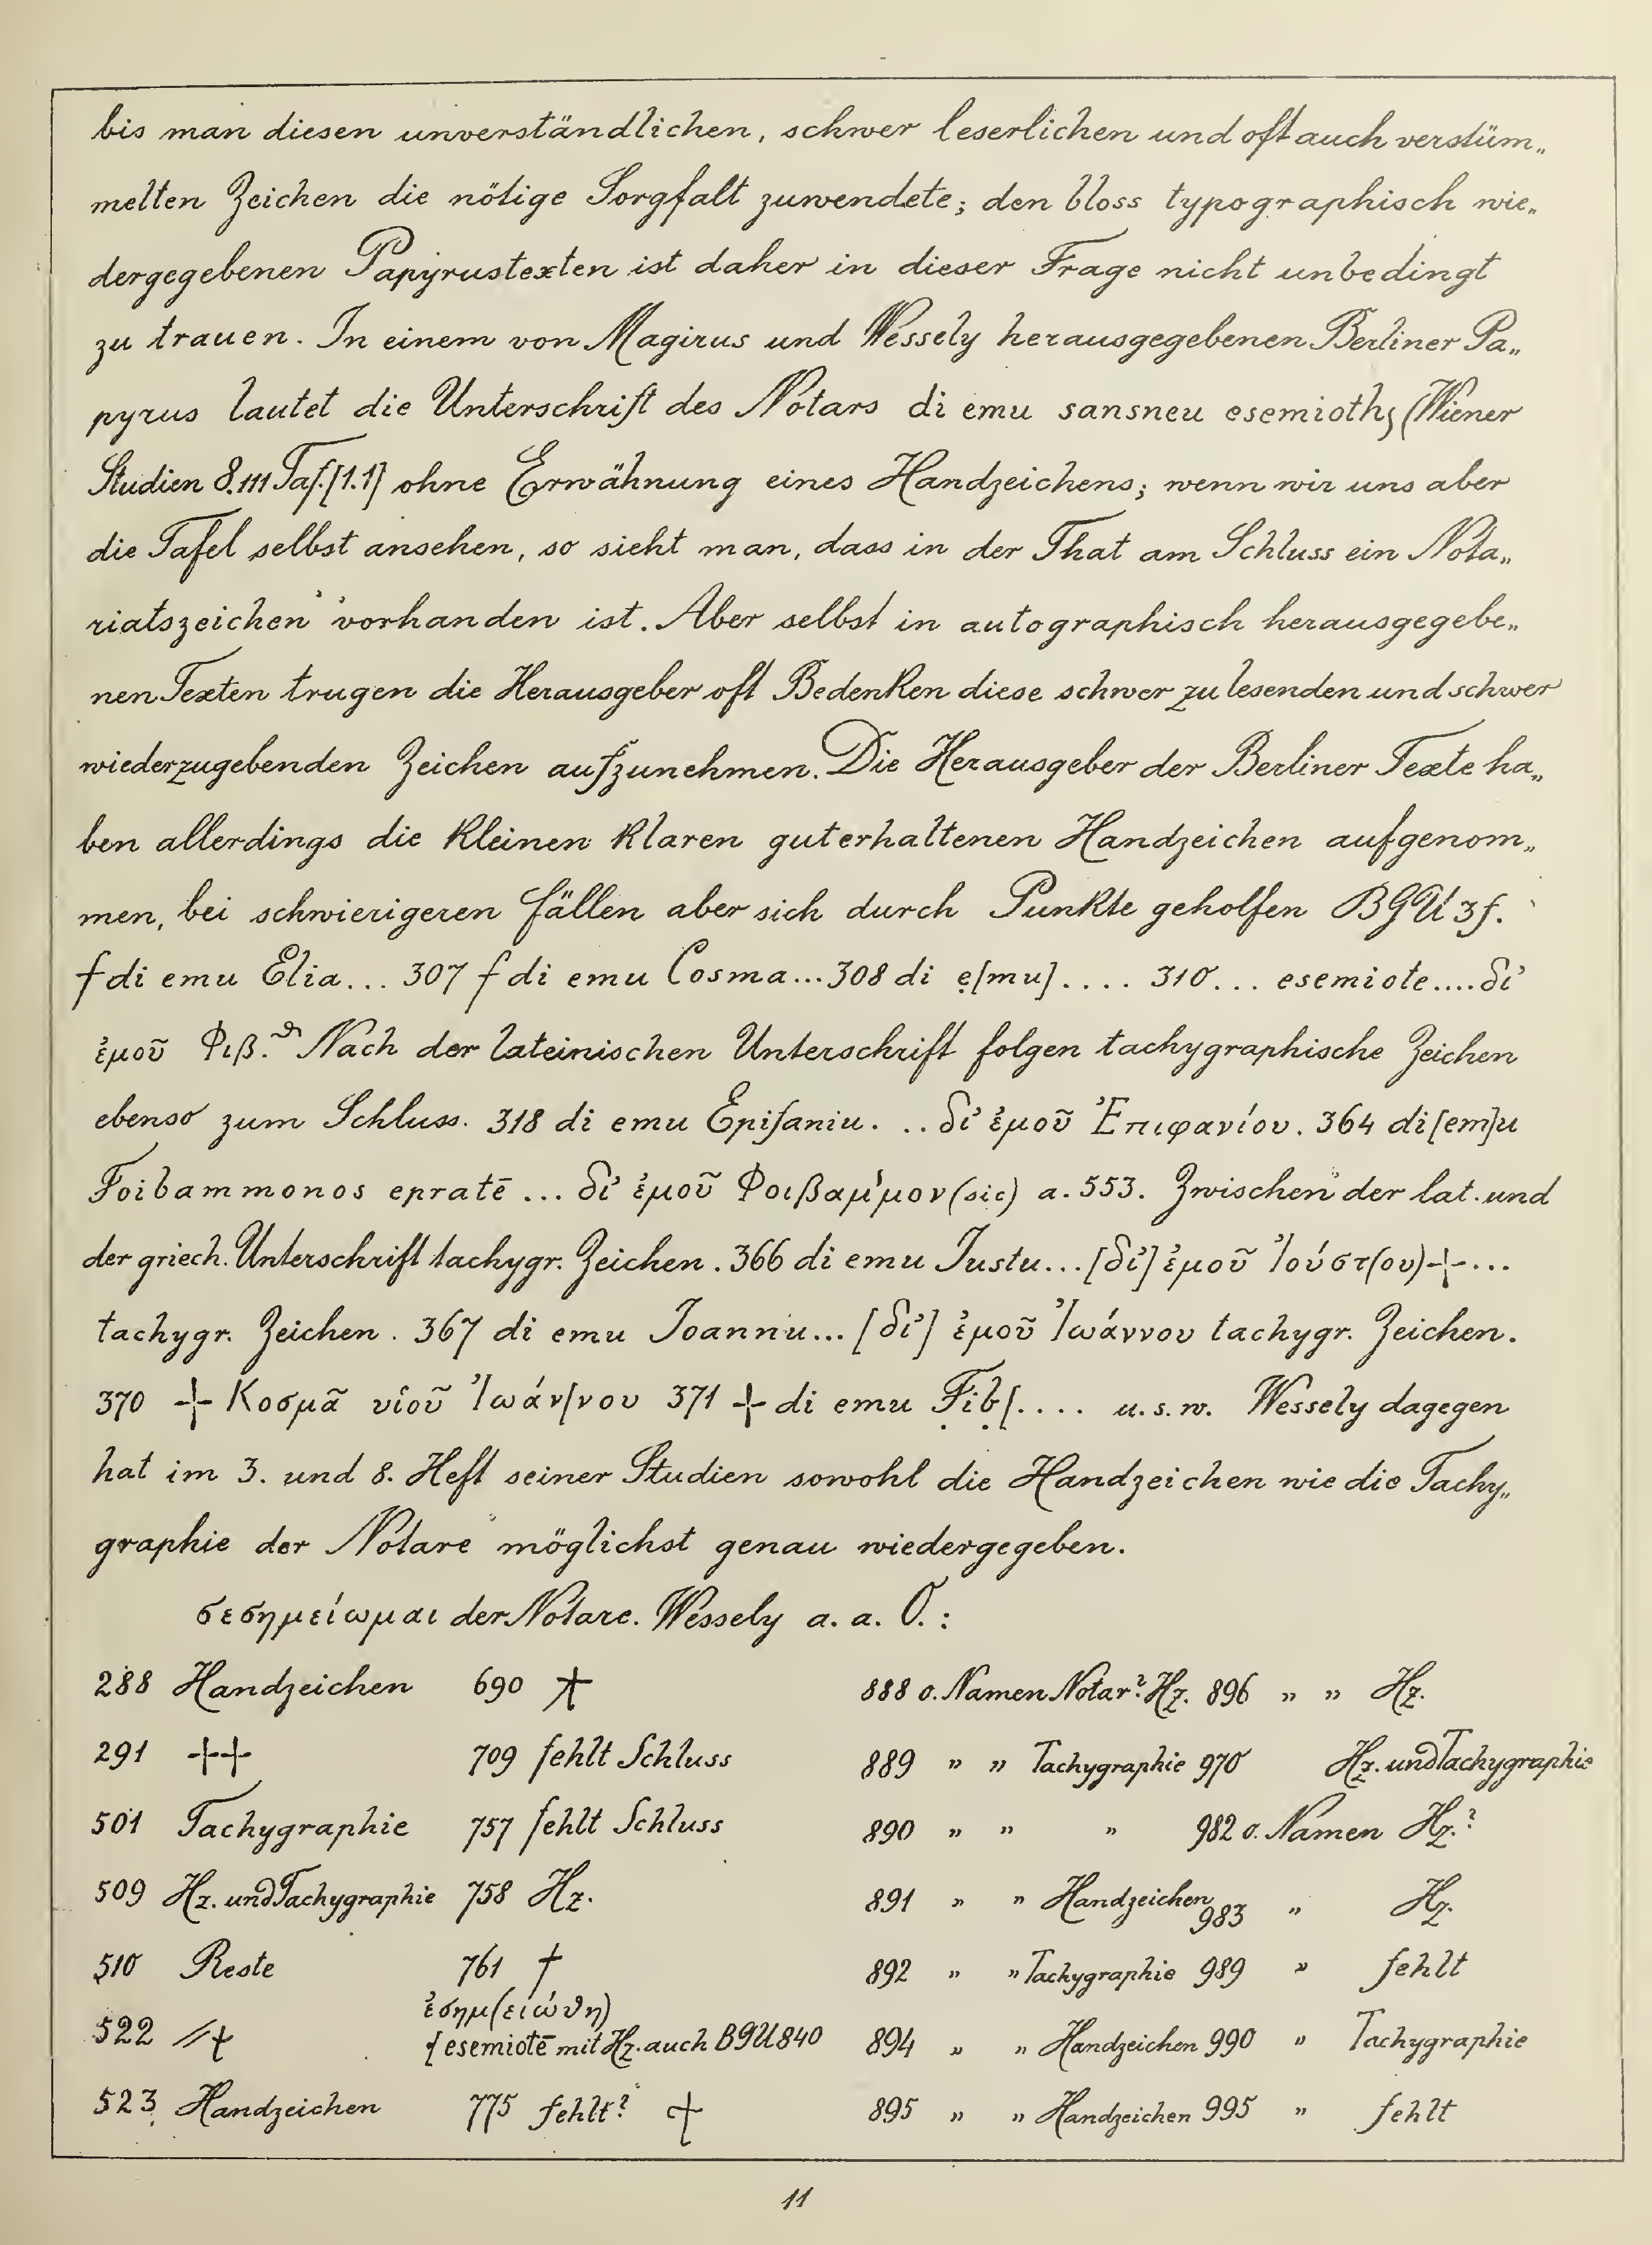 bis man diesen unverständlichen, schwer leserlichen und oft auch verstüm„
melten Zeichen die nötige Sorgfalt zuwendete; den bloss typographisch wie„
dergegebenen Papyrustexten ist daher in dieser Frage nicht unbedingt
zu trauen. In einem von Magirus und Wessely herausgegebenen Berliner Pa„
pyrus lautet die Unterschrift des Notars di emu sansneu esemioth (Wiener
Studien 8.111 Taf.[1.1] ohne Erwähnung eines Handzeichens; wenn wir uns aber
die Tafel selbst ansehen, so sieht man, dass in der That am Schluss ein Nota„
riatszeichen vorhanden ist. Aber selbst in autographisch herausgegebe„
nen Texten trugen die Herausgeber oft Bedenken diese schwer zu lesenden und schwer
wiederzugebenden Zeichen aufzunehmen. Die Herausgeber der Berliner Texte ha„
ben allerdings die kleinen klaren guterhaltenen Handzeichen aufgenom„
men, bei schwierigeren Fällen aber sich durch Punkte geholfen BGU 3 f.
f di emu Elia... 307 f di emu Cosma... 308 di ẹ[mu].... 310... esemiote.... δἰ
ἐμοῦ Φιβ.ϑ Nach der lateinischen Unterschrift folgen tachygraphische Zeichen
ebenso zum Schluss. 318 di emu Epifaniu. .. δἰ ἐμοῦ Ἐπιφανίου. 364 di[em]u
Foibammonos epratē ... δἰ ἐμοῦ Φοιβαμ'μον (sic) a. 553. Zwischen der lat. und
der griech. Unterschrift tachygr. Zeichen. 366 di emu Justu... [δἰ] ἐμοῦ Ἰούστ(ου) + ...
tachygr. Zeichen. 367 di emu Joannu... [δἰ] ἐμοῦ Ἰωάννου tachygr. Zeichen.
370 + Κοσμᾶ υἱοῦ Ἰωάν[νου 371 + di emu F̣ib̤[.... u.s.w. Wessely dagegen
hat im 3. und 8. Heft seiner Studien sowohl die Handzeichen wie die Tachy„
graphie der Notare möglichst genau wiedergegeben.
σεσημείωμαι der Notare. Wessely a. a. O.:
288 Handzeichen 690 ⳨ 888 o. Namen Notar? Hz. 896 „ „ Hz.
291 ++ 709 fehlt Schluss 889 „ „ Tachygraphie 970 Hz. und Tachygraphie
501 Tachygraphie 757 fehlt Schluss 890 „ „ „ 982 o. Namen Hz.?
509 Hz. und Tachygraphie 758 Hz. 891 „ „ Handzeichen 983 „ Hz.
510 Reste 761 † 892 „ „ Tachygraphie 989 „ fehlt
522 //† ἐσημ(ειώθη)
{esemiotē mit Hz. auch BGU 840 894 „ „ Handzeichen 990 „ Tachygraphie
523 Handzeichen 775 fehlt? † 895 „ „ Handzeichen 995 „ fehlt
11